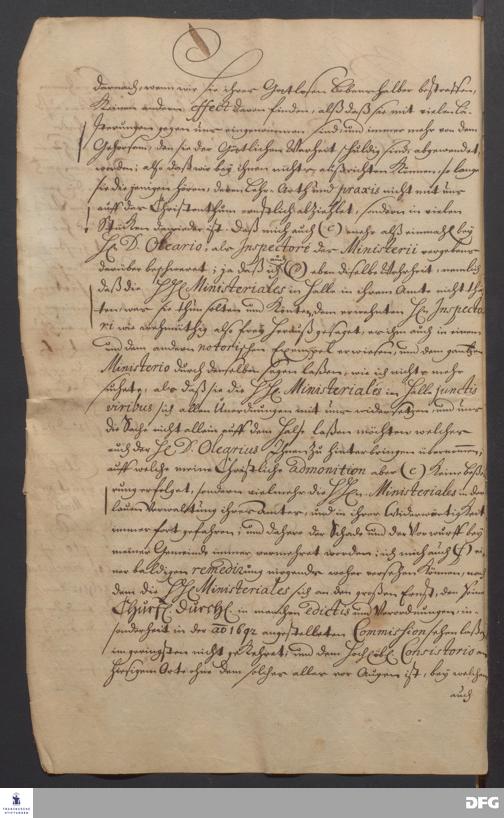 darnach, wenn wir sie ihrer Gottlosen Lebens halber bestraffen,
keinen andern Effect davon finden, alß daß sie mit vielen Lä-
sterungen gegen uns eingenommen sind, und immer mehr von dem
Gehorsam, den sie der Göttlichen Warheit schuldig sind, abgewendet
werden; also daß wir bey ihnen nichts außrichten können, so lange
sie diejenigen hören, deren Lehr-Arth und praxis nicht mit uns
auff das Christenthum ernstlich abziehlet, sondern in vielen
Stücken darwieder ist. Daß mich auch (c) mehr alß einmahl bey
H. D. Oleario, als Inspectore des Ministerii vergebens
darüber beschweret; ja daß ich auch (d) eben dieselbe Warheit, nemlich
daß die HH. Ministeriales in Halle in ihrem Amte nicht thä-
ten, was sie thun solten und könten, dem verwehnten H. Inspecto-
ri wie wehmüthig also frey herauß gesaget, es ihm auch in einem
und dem andern notorischen Exempel erwiesen, und dem gantzen
Ministerio durch denselben sagen laßen, wie ich nichts mehr
suchete, als daß sie die HH. Ministeriales in Halle junctis
viribus sich allen Unordnungen mit uns widersetzen, und uns
die Sache nicht allein auff dem Halse laßen möchten, welches
auch der H. D. Olearius ihnen zu hinterbringen übernommen;
auff welche meine Christliche admonition aber (e) keine Beße-
rung erfolget, sondern vielmehr die HH. Ministeriales in der
lauen Verwaltung ihres Amtes, und in ihrer Widerwertigkeit
immer fort gefahren, und dahero der Schade und der Vorwurff bey
meiner Gemeinde immer vermehret worden; ich mich auch (f) ei-
ner baldigen remedirung nirgends woher versehen können, nach
dem die HH. Ministeriales sich an den großen Ernst, den Seine
Churf. Durchl. in manchen edictis und Verordnungen, in-
sonderheit in der ao 1692 angestelleten Commission sehen laßen,
im geringsten nicht gekehret, und dem Hochlöbl. Consistorio an
hiesigem Orte ohne dem solches alles vor Augen ist, bey welchem
auch
FRANCKESCHE
STIFTUNGEN
DFG